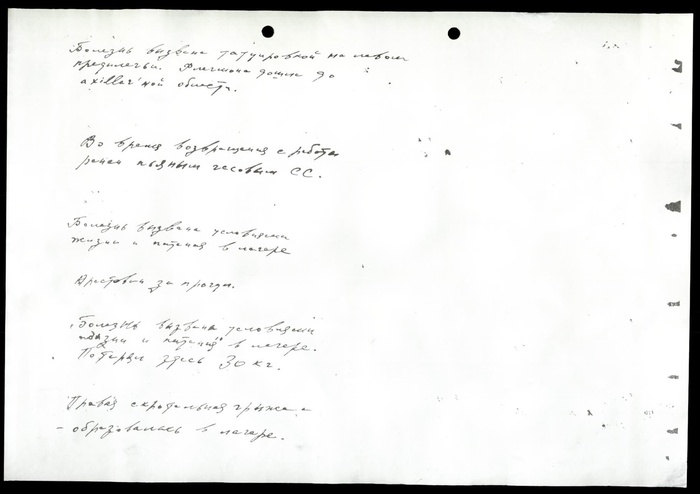 Болезнь вызвана татуировкой на левом
предплечьи. Флегмона дошла до
axillar'ной области.
Во время возвращения с работы
ранен пьяным часовым СС.
Болезнь вызвана условиями
жизни и питания в лагере
Арестован за прогул.
Болезнь вызвана условиями
жизни и питания в лагере.
Потерял здесь 30 кг.
Правая скротальная грыжа
- образовалась в лагере.